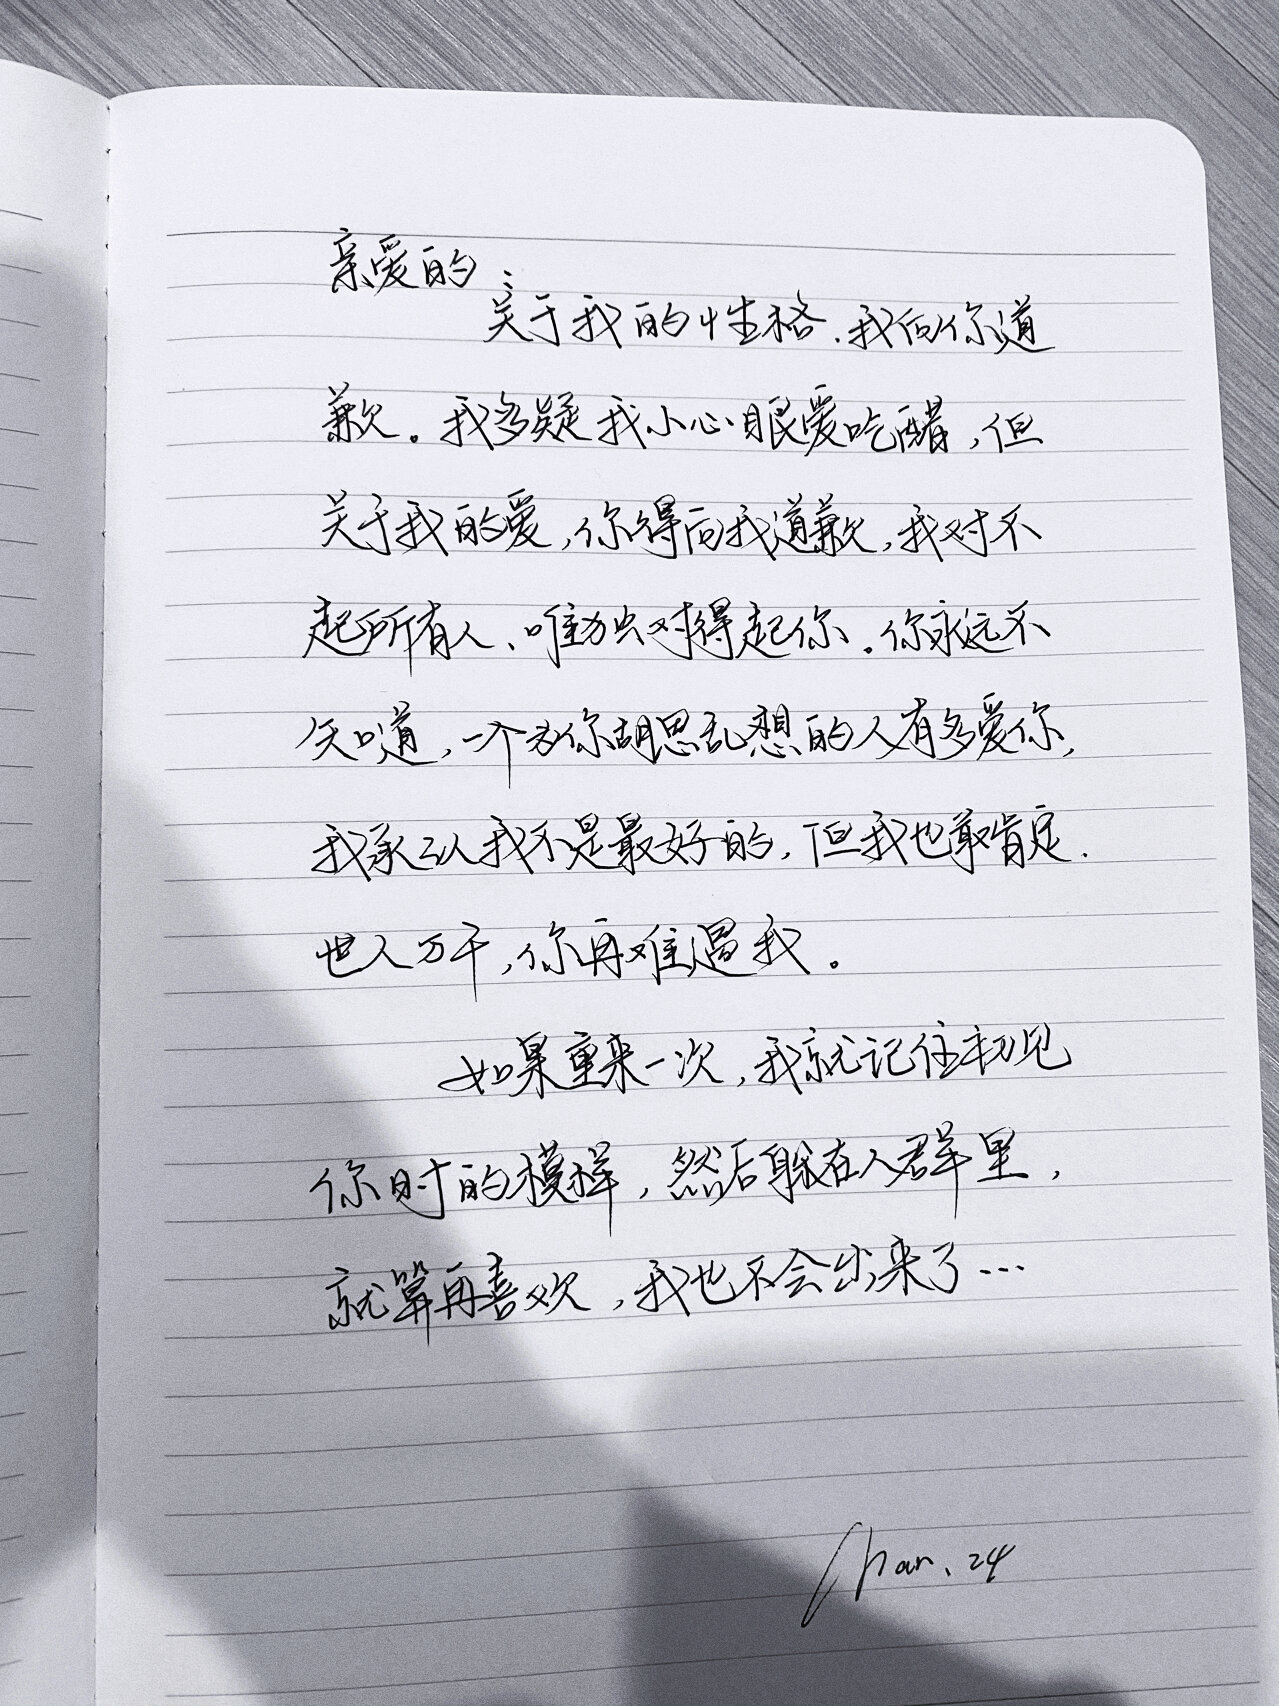 亲爱的:
关于我的性格.我向你道
歉。我多疑我小心眼爱吃醋,但
关于我的爱,你得向我道歉,我对不
起所有人、唯独对得起你。你永远不
知道,一个为你胡思乱想的人有多爱你,
我承认我不是最好的,但我也敢肯定.
世人万千,你再难遇我。
如果重来一次,我就记住初见
你时的模样,然后躲在人群里,
就算再喜欢,我也不会出来了…
Chan.24